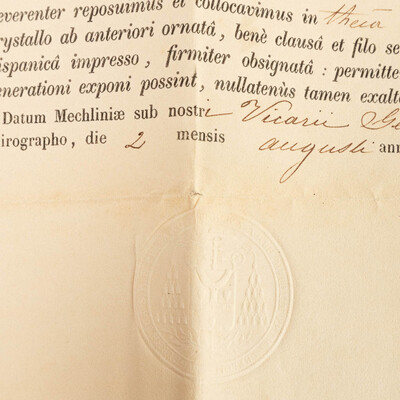 everenter reposuimus et collocavimus in theca
rystallo ab anteriori ornatâ, benè clausâ et filo se
ispanicâ impresso, firmiter obsignatâ : permitte
enerationi exponi possint, nullatenùs tamen exalt
Datum Mechliniæ sub nostri Vicarii Ge
irographo, die 2 mensis augusti ann